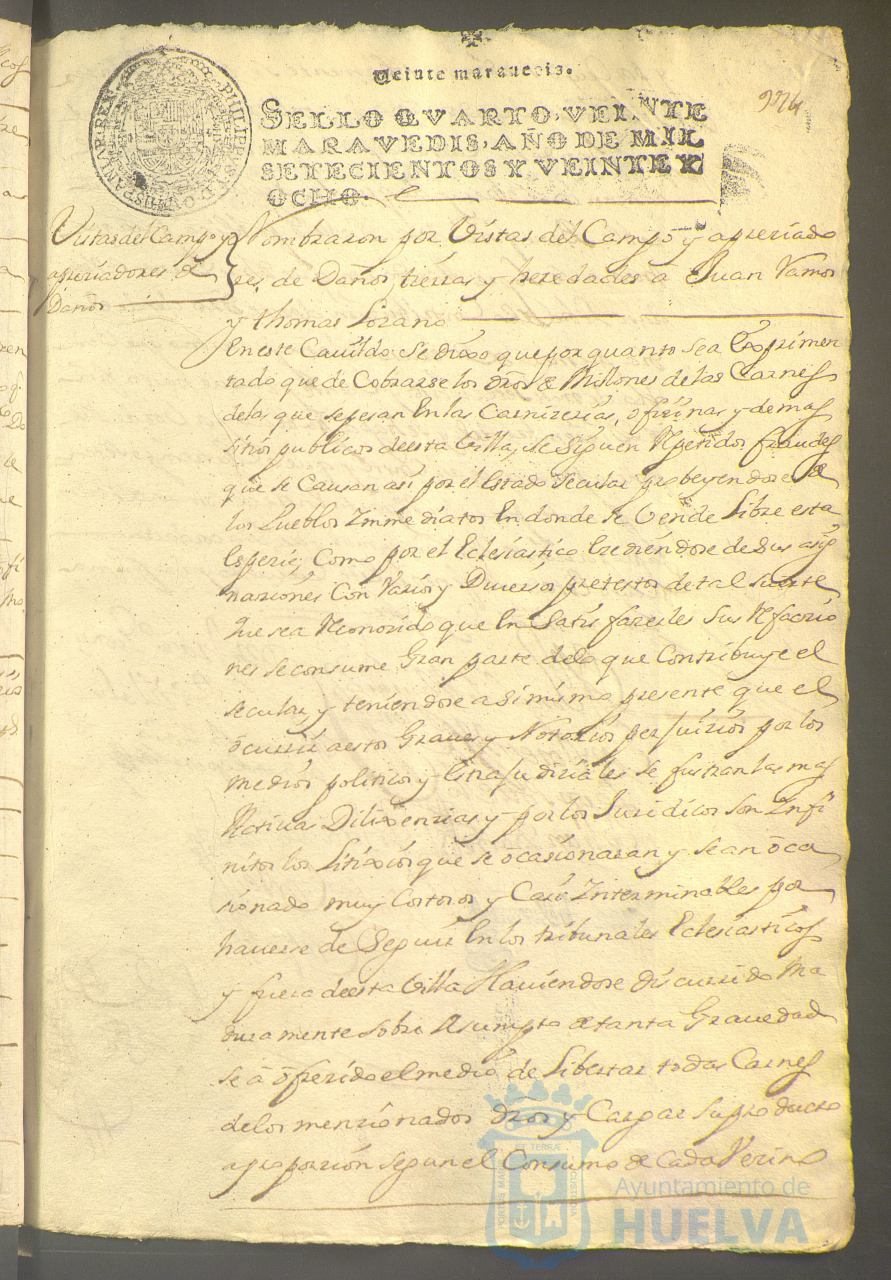 Veinte maravedis.
SELLO QVARTO, VEINTE
MARAVEDIS, AÑO DE MIL
SETECIENTOS Y VEINTE Y
OCHO.
PHILIPPUS V D G HISPANIAR REX
Vistas del Campo y
apreciadores de
Daños
Nombraron por Vistas del Campo y apreciado
res de Daños tierras y heredades a Juan Ramos
y thomas Lozano
En este Cavildo Se dixo que por quanto sea Experimen
tado que de Cobrarse los dros de Millones de las Carnes
delas que sepesan En las Carnizerias, ofizinas y demas
sitios publicos deesta Villa, se Siguen Repetidos fraudes
que se Causan asi por el Estado Secular probeyendose de
los Pueblos Immediatos En donde se Vende Libre esta
Espezie, Como por el Eclesiastico Exediendose de sus asig
naziones Con Varios y Diversos pretextos de tal suerte
Que sea Reconozido que En Satisfazerles Sus Refaczio
nes se consume Gran parte delo que Contribuye el
secular, y teniendose asimismo presente que el
ocurrir aestos Graves y Notorios perjuizios por los
medios politicos y Extrajudiziales se frustran las mas
Activas Dilixenzias y por los Juridicos son Infi
nitos los Litixios que se ocasionaran y se an oca
sionado muy Costosos y Casi Interminables por
haverse de Seguir En los tribunales Eclesiasticos
y fuera deesta Villa Haviendose discurrido Ma
duramente sobre Asumpto de tanta Gravedad
se a ofrezido el medio de Libertar todas Carnes
delos menzionados dros y Cargar su producto
a proporzion segun el Consumo de Cada Vezino
PORTUS MARIS ET TERRAE CUSTODIA
Ayuntamiento de
HUELVA